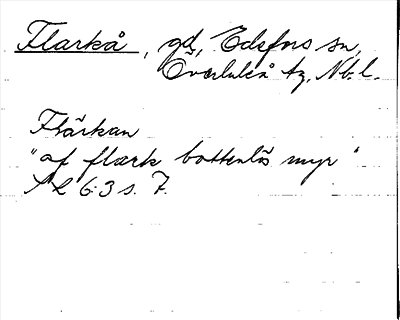 Flarkå, gd, Edefors sn,
Överluleå tg, Nb. l.
Flärkan
"af flark bottenlös myr"
S 63 s. 7.